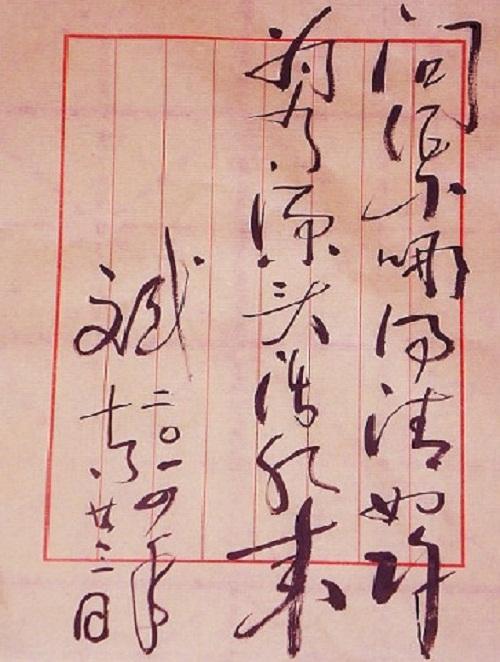 问渠哪得清如许
为有源头活水来
斌
二〇一四年
十月廿三日